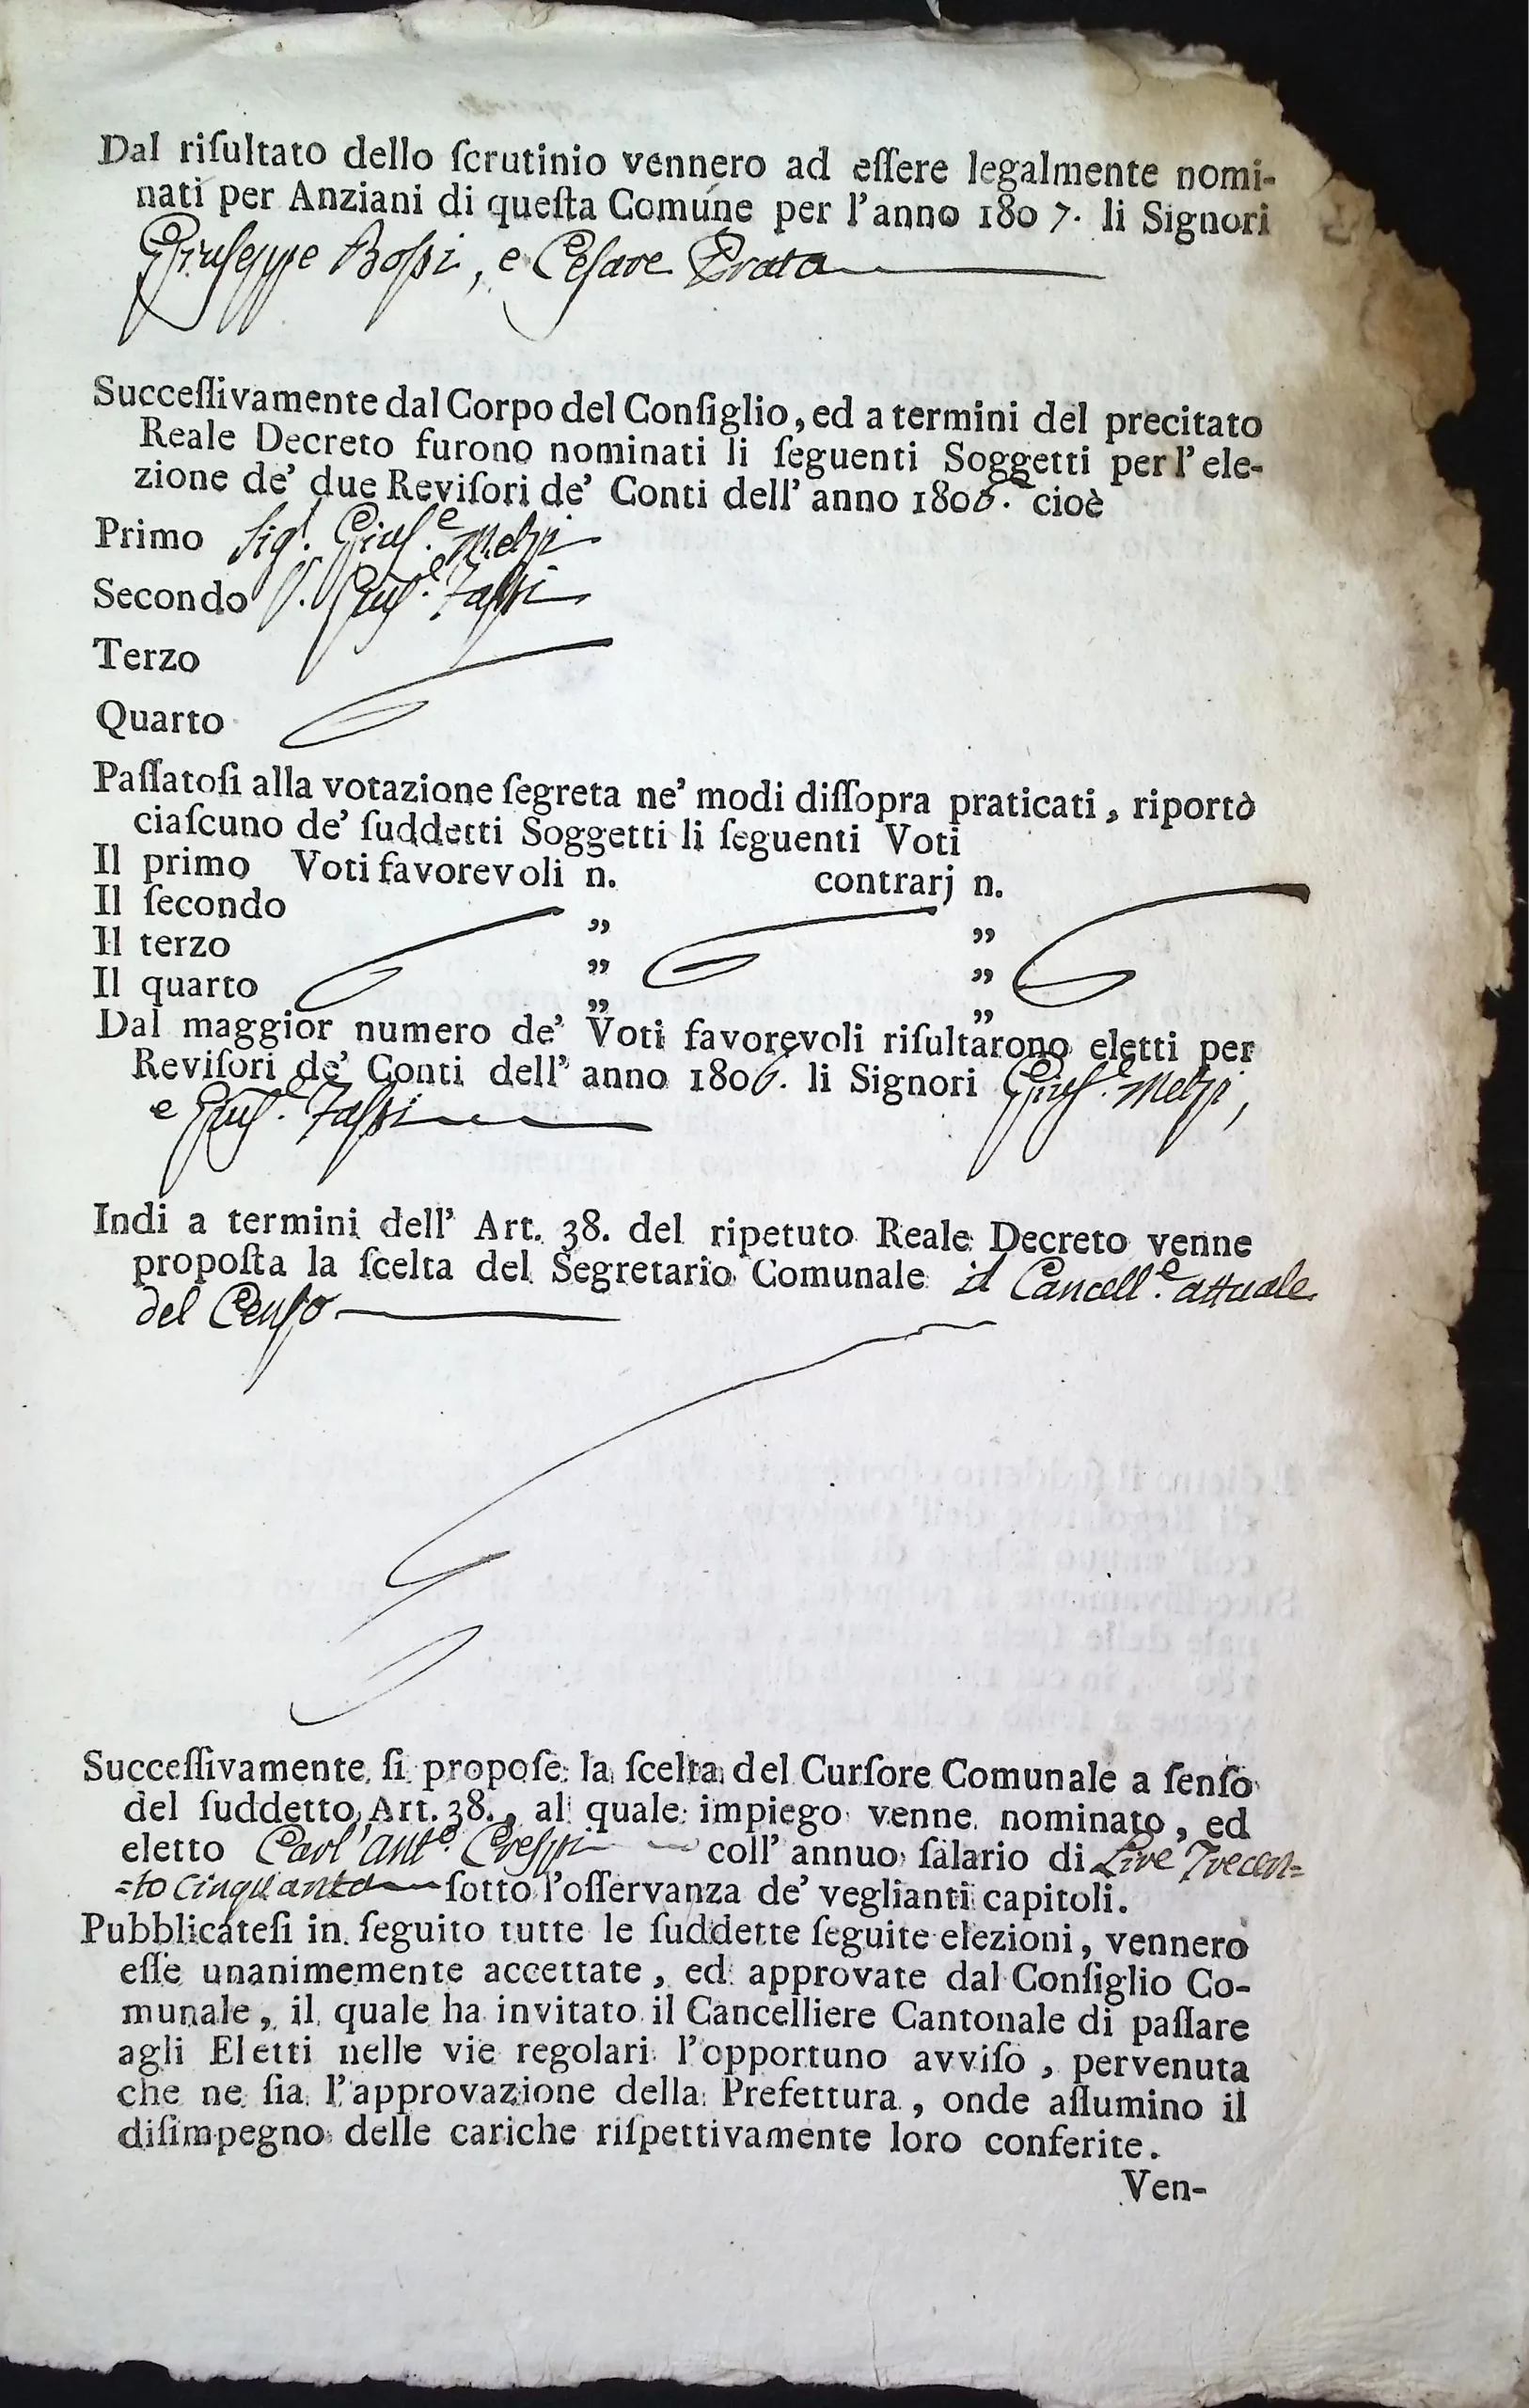 Dal riſultato dello ſcrutinio vennero ad eſſere legalmente nomi-
nati per Anziani di queſta Comune per l'anno 1807. li Signori
Giuſeppe Boſsi, e Ceſare Prata
Succeſſivamente dal Corpo del Conſiglio, ed a termini del precitato
Reale Decreto furono nominati li ſeguenti Soggetti per l'ele-
zione de' due Reviſori de' Conti dell' anno 1806. cioè
Primo Sig.r Giuſ.e Melzi
Secondo S. Giuſ.e
Terzo
Quarto
Paſſatoſi alla votazione ſegreta ne' modi diſſopra praticati, riportò
ciaſcuno de' ſuddetti Soggetti li ſeguenti Voti
Il primo Voti favorevoli n. contrarj n.
Il ſecondo „ „
Il terzo „ „
Il quarto „ „
Dal maggior numero de' Voti favorevoli riſultarono eletti per
Reviſori de' Conti dell' anno 1806. li Signori Giuſ.e Melzi,
e Giuſ.e
Indi a termini dell' Art. 38. del ripetuto Reale Decreto venne
propoſta la ſcelta del Segretario Comunale il Cancell.e attuale
del Cenſo
Succeſſivamente ſi propoſe la ſcelta del Curſore Comunale a ſenſo
del ſuddetto Art. 38., al quale impiego venne nominato, ed
eletto Carl'Ant.o Creſpi coll' annuo ſalario di Lire Trecen=
=to cinquanta ſotto l'oſſervanza de' veglianti capitoli.
Pubblicateſi in ſeguito tutte le ſuddette ſeguite elezioni, vennero
eſſe unanimemente accettate, ed approvate dal Conſiglio Co-
munale, il quale ha invitato il Cancelliere Cantonale di paſſare
agli Eletti nelle vie regolari l'opportuno avviſo, pervenuta
che ne ſia l'approvazione della Prefettura, onde aſſumino il
diſimpegno delle cariche riſpettivamente loro conferite.
Ven-